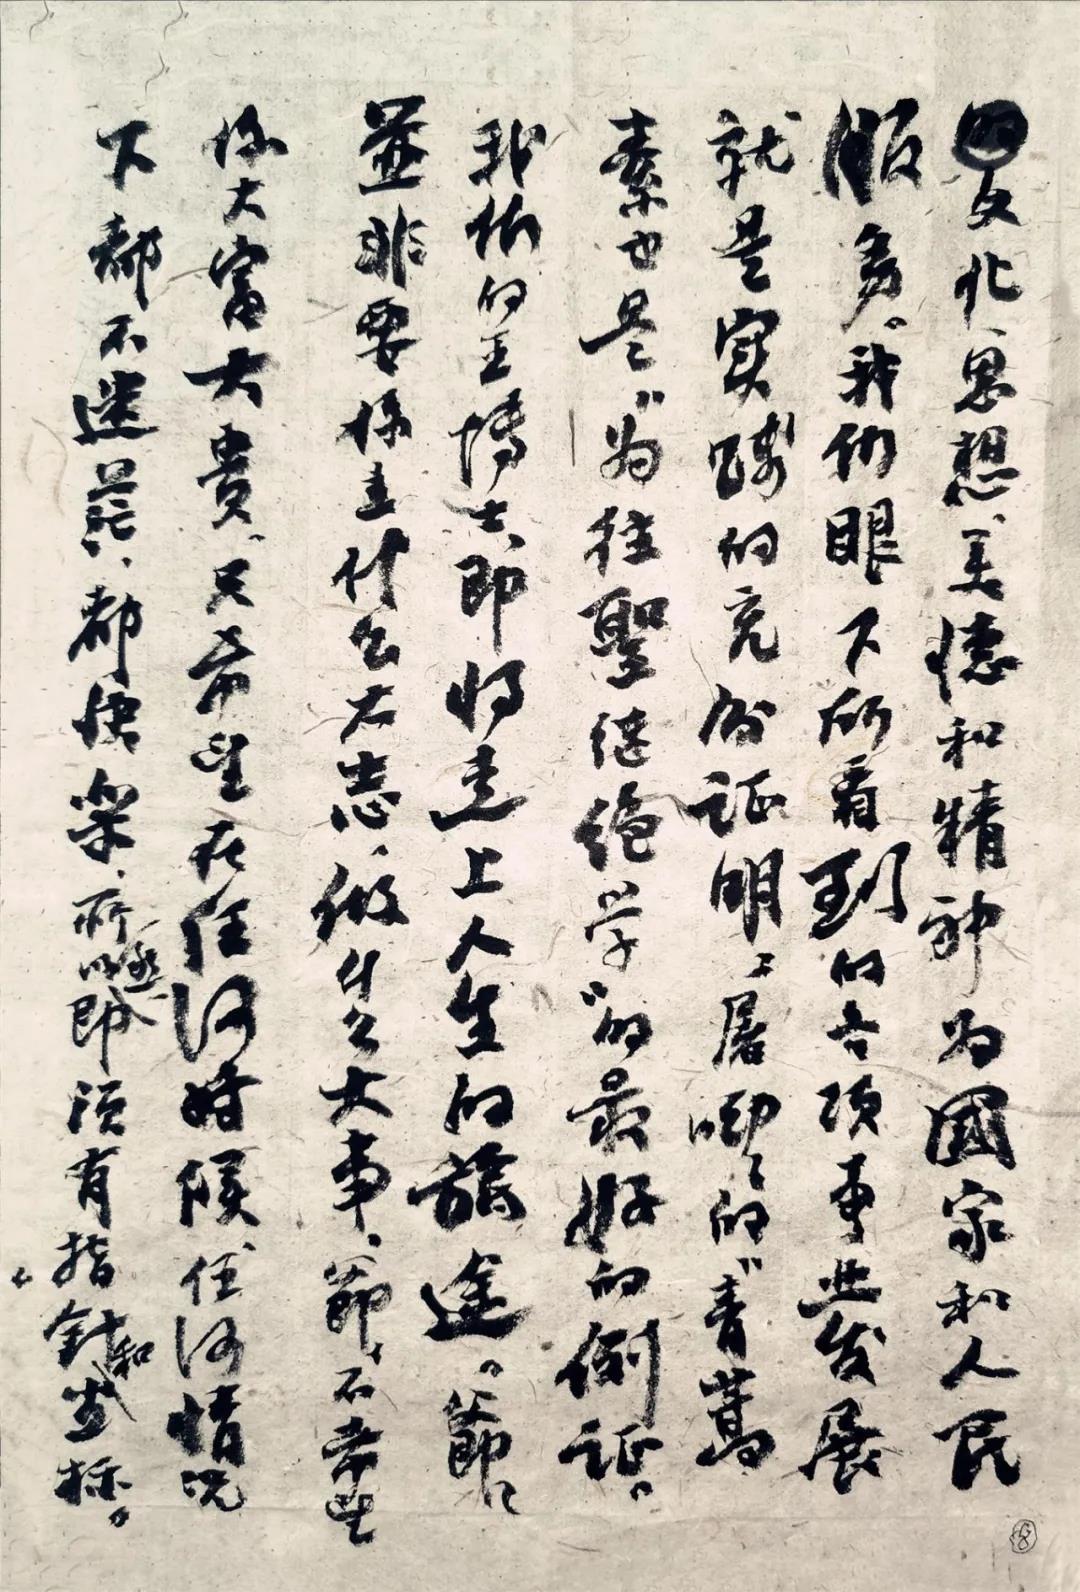 的文化、思想、美德和精神为國家和人民
服务。我们眼下所看到的各项事业发展
就是实践的充分证明。屠呦呦的“青蒿
素也是“为往聖继绝学”的最好的例证。
我们的王博士即将走上人生的旅途。爺爺
並非要你立什么大志、做什么大事、爺爺不希望
你大富大贵、只希望在任何时候任何情况
下都不迷茫、都快樂、所以
即须有指針和坐标。
8